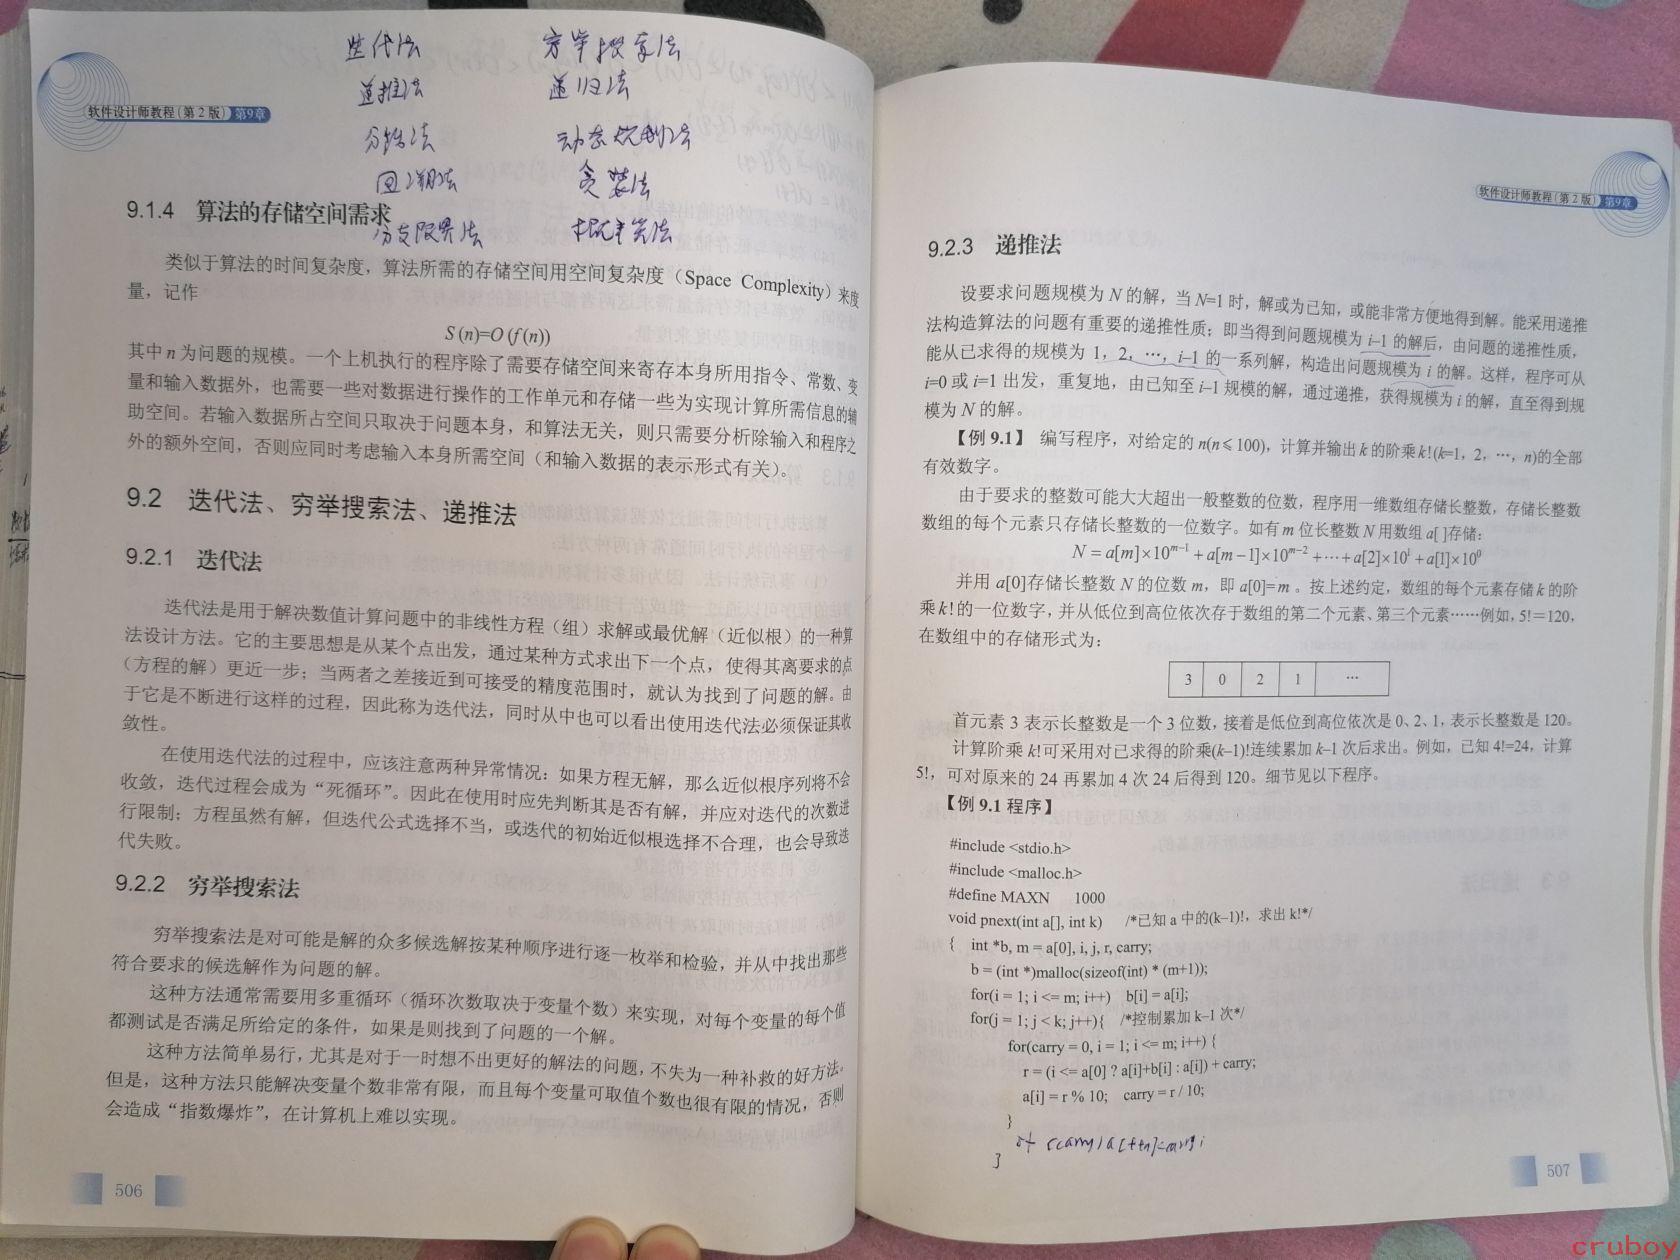 迭代法 穷举搜索法
递推法 递归法
分治法 动态规划法
回溯法 贪婪法
分支限界法 概率算法
软件设计师教程(第2版) 第9章
9.1.4 算法的存储空间需求
类似于算法的时间复杂度，算法所需的存储空间用空间复杂度（Space Complexity）来度
量，记作
S (n)=O (f (n))
其中 n 为问题的规模。一个上机执行的程序除了需要存储空间来寄存本身所用指令、常数、变
量和输入数据外，也需要一些对数据进行操作的工作单元和存储一些为实现计算所需信息的辅
助空间。若输入数据所占空间只取决于问题本身，和算法无关，则只需要分析除输入和程序之
外的额外空间，否则应同时考虑输入本身所需空间（和输入数据的表示形式有关）。
9.2 迭代法、穷举搜索法、递推法
9.2.1 迭代法
迭代法是用于解决数值计算问题中的非线性方程（组）求解或最优解（近似根）的一种算
法设计方法。它的主要思想是从某个点出发，通过某种方式求出下一个点，使得其离要求的点
（方程的解）更近一步；当两者之差接近到可接受的精度范围时，就认为找到了问题的解。由
于它是不断进行这样的过程，因此称为迭代法，同时从中也可以看出使用迭代法必须保证其收
敛性。
在使用迭代法的过程中，应该注意两种异常情况：如果方程无解，那么近似根序列将不会
收敛，迭代过程会成为“死循环”。因此在使用时应先判断其是否有解，并应对迭代的次数进
行限制；方程虽然有解，但迭代公式选择不当，或迭代的初始近似根选择不合理，也会导致迭
代失败。
9.2.2 穷举搜索法
穷举搜索法是对可能是解的众多候选解按某种顺序进行逐一枚举和检验，并从中找出那些
符合要求的候选解作为问题的解。
这种方法通常需要用多重循环（循环次数取决于变量个数）来实现，对每个变量的每个值
都测试是否满足所给定的条件，如果是则找到了问题的一个解。
这种方法简单易行，尤其是对于一时想不出更好的解法的问题，不失为一种补救的好方法。
但是，这种方法只能解决变量个数非常有限，而且每个变量可取值个数也很有限的情况，否则
会造成“指数爆炸”，在计算机上难以实现。
506
软件设计师教程(第2版) 第9章
9.2.3 递推法
设要求问题规模为 N 的解，当 N=1 时，解或为已知，或能非常方便地得到解。能采用递推
法构造算法的问题有重要的递推性质：即当得到问题规模为 i–1 的解后，由问题的递推性质，
能从已求得的规模为 1，2，…，i–1 的一系列解，构造出问题规模为 i 的解。这样，程序可从
i=0 或 i=1 出发，重复地，由已知至 i–1 规模的解，通过递推，获得规模为 i 的解，直至得到规
模为 N 的解。
【例 9.1】 编写程序，对给定的 n(n≤100)，计算并输出 k 的阶乘 k!(k=1，2，…，n)的全部
有效数字。
由于要求的整数可能大大超出一般整数的位数，程序用一维数组存储长整数，存储长整数
数组的每个元素只存储长整数的一位数字。如有 m 位长整数 N 用数组 a[ ]存储：
N = a[m]×10^{m−1} + a[m−1]×10^{m−2} + ⋯ + a[2]×10^1 + a[1]×10^0
并用 a[0]存储长整数 N 的位数 m，即 a[0]=m 。按上述约定，数组的每个元素存储 k 的阶
乘 k! 的一位数字，并从低位到高位依次存于数组的第二个元素、第三个元素……例如，5!＝120，
在数组中的存储形式为：
3 0 2 1 …
首元素 3 表示长整数是一个 3 位数，接着是低位到高位依次是 0、2、1，表示长整数是 120。
计算阶乘 k!可采用对已求得的阶乘(k–1)!连续累加 k–1 次后求出。例如，已知 4!=24，计算
5!，可对原来的 24 再累加 4 次 24 后得到 120。细节见以下程序。
【例 9.1 程序】
#include <stdio.h>
#include <malloc.h>
#define MAXN 1000
void pnext(int a[], int k) /*已知 a 中的(k–1)!，求出 k!*/
{ int *b, m = a[0], i, j, r, carry;
b = (int *)malloc(sizeof(int) * (m+1));
for(i = 1; i <= m; i++) b[i] = a[i];
for(j = 1; j < k; j++){ /*控制累加 k–1 次*/
for(carry = 0, i = 1; i <= m; i++) {
r = (i <= a[0] ? a[i]+b[i] : a[i]) + carry;
a[i] = r % 10; carry = r / 10;
}
if (carry) a[++m]=carry;
}
507
cruboy